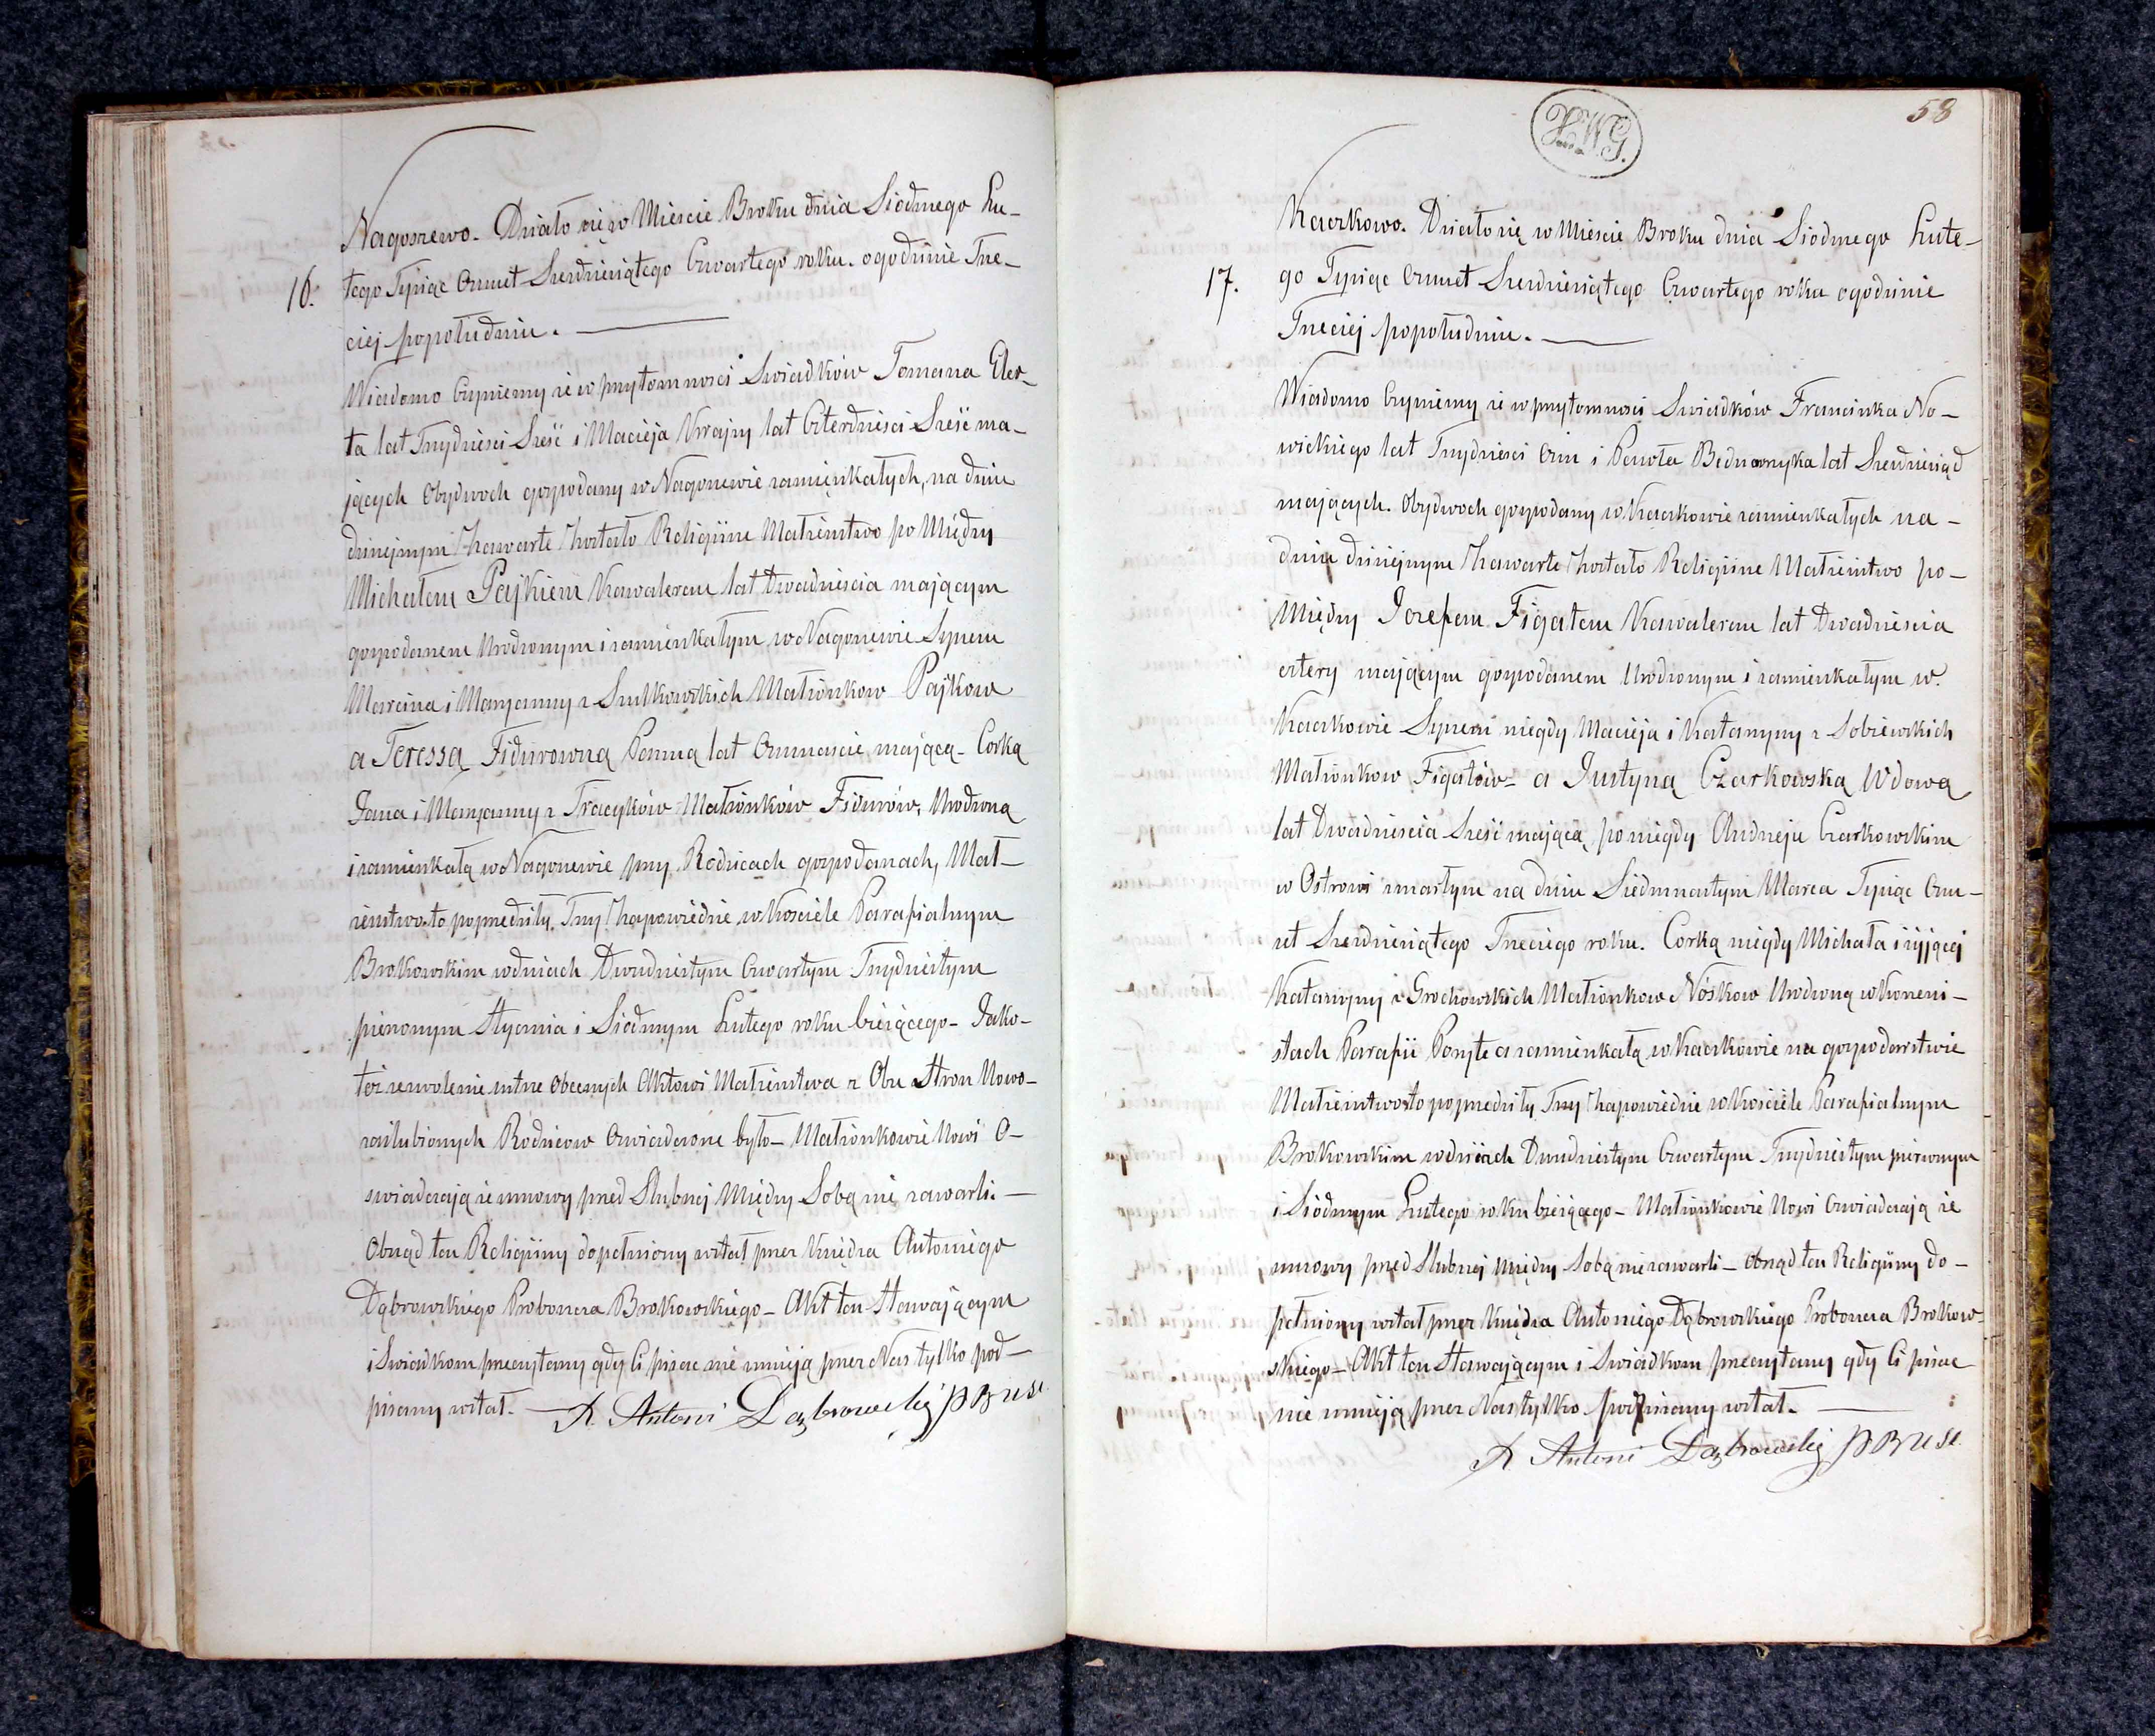 Nagoszewo. Działo się w Mieście Broku dnia Siódmego Lu-
16. tego Tysiąc Ośmset Sześdziesiątego Czwartego roku. o godzinie Trze-
ciej popołudniu.
Wiadomo Czyniemy że w przytomności Swiadków Tomasza
ta lat Trzydzieści Sześć i Macieja Krajzy lat Czterdzieści Sześć ma-
jących Obydwoch gospodarzy w Nagoszewie zamięszkałych, na dniu
dzisiejszym Zawarte Zostało Religijne Małżeństwo po Między
Michałem Pajkiem Kawalerem lat Dwadzieścia mającym
gospodarzem Urodzonym i zamieszkałym w Nagoszewie Synem
Marcina i Maryanny z Sutkowskich Małżonkow Pajkow
a Teressą Fidurowną Panną lat Ośmnaście mającą - Corką
Jana i Maryanny z Tracyków Małżonków Fidurów, Urodzoną
i zamieszkałą w Nagoszewie przy Rodzicach gospodarzach, Mał-
żeństwo to poprzedziły Trzy Zapowiedzie w Kosciele Parafialnym
Brokowskim w dniach Dwudziestym Czwartym Trzydziestym
pierwszym Stycznia i Siódmym Lutego roku bieżącego - Jako-
też zezwolenie ustne Obecnych Aktowi Małżeństwa z Obu Stron Nowo-
zaślubionych Rodziców Oswiadczone było - Małżonkowie Nowi O-
swiadczają że umowy przed Slubnej Między Sobą nie zawarli. -
Obrząd ten Religijny dopełniony został przez Xiędza Antoniego
Dąbrowskiego Proboszcza Brokowskiego - Akt ten Stawającym
i Swiadkom przeczytany gdy Ci pisac nie umieją przez Nas tylko pod-
pisany został. - X. Antoni Dąbrowski P B U S C
58
W. G.
Kaczkowo. Działo się w Mieście Broku dnia Siódmego Lute-
17. go Tysiąc Ośmset Sześdziesiątego Czwartego roku o godzinie
Trzeciej popołudniu.
Wiadomo Czyniemy że w przytomności Swiadków Franciszka No-
wickiego lat Trzydzieści Ośm i Pawła Bednarczyka lat Sześdziesiąd
mających. Obydwoch gospodarzy w Kaczkowie zamieszkałych na -
dniu dzisiejszym Zawarte Zostało Religijne Małżeństwo po-
Między Jozefem Figatem Kawalerem lat Dwadzieścia
cztery mającym gospodarzem Urodzonym i zamieszkałym w.
Kaczkowie Synem niegdy Macieja i Katarzyny z Sobiewskich
Małżonkow Figatów - a Justyną Czarkowską Wdową
lat Dwadzieścia Sześć mającą, po niegdy Andrzeju Czarkowskim
w Ostrowi zmarłym na dniu Siedmnastym Marca Tysiąc Ośm-
set Sześdziesiątego Trzeciego roku. Corką niegdy Michała i żyjącej
Katarzyny z Grochowskich Małżonkow Nosków Urodzoną w
stach Parafii Poręte a zamieszkałą w Kaczkowie na gospodarstwie
Małżeństwo to poprzedziły Trzy Zapowiedzie w Kosciele Parafialnym
Brokowskim w dniach Dwudziestym Czwartym Trzydziestym pierwszym
i Siódmym Lutego roku bieżącego - Małżonkowie Nowi Oswiadczają że
umowy przed Slubnej między Sobą nie zawarli - Obrząd ten Religijny do-
pełniony został przez Xiędza Antoniego Dąbrowskiego Proboszcza Brokow-
skiego - Akt ten Stawającym i Swiadkom przeczytany gdy Ci pisac
nie umieją przez Nas tylko podpisany został. -
X Antoni Dąbrowski P B U S C.